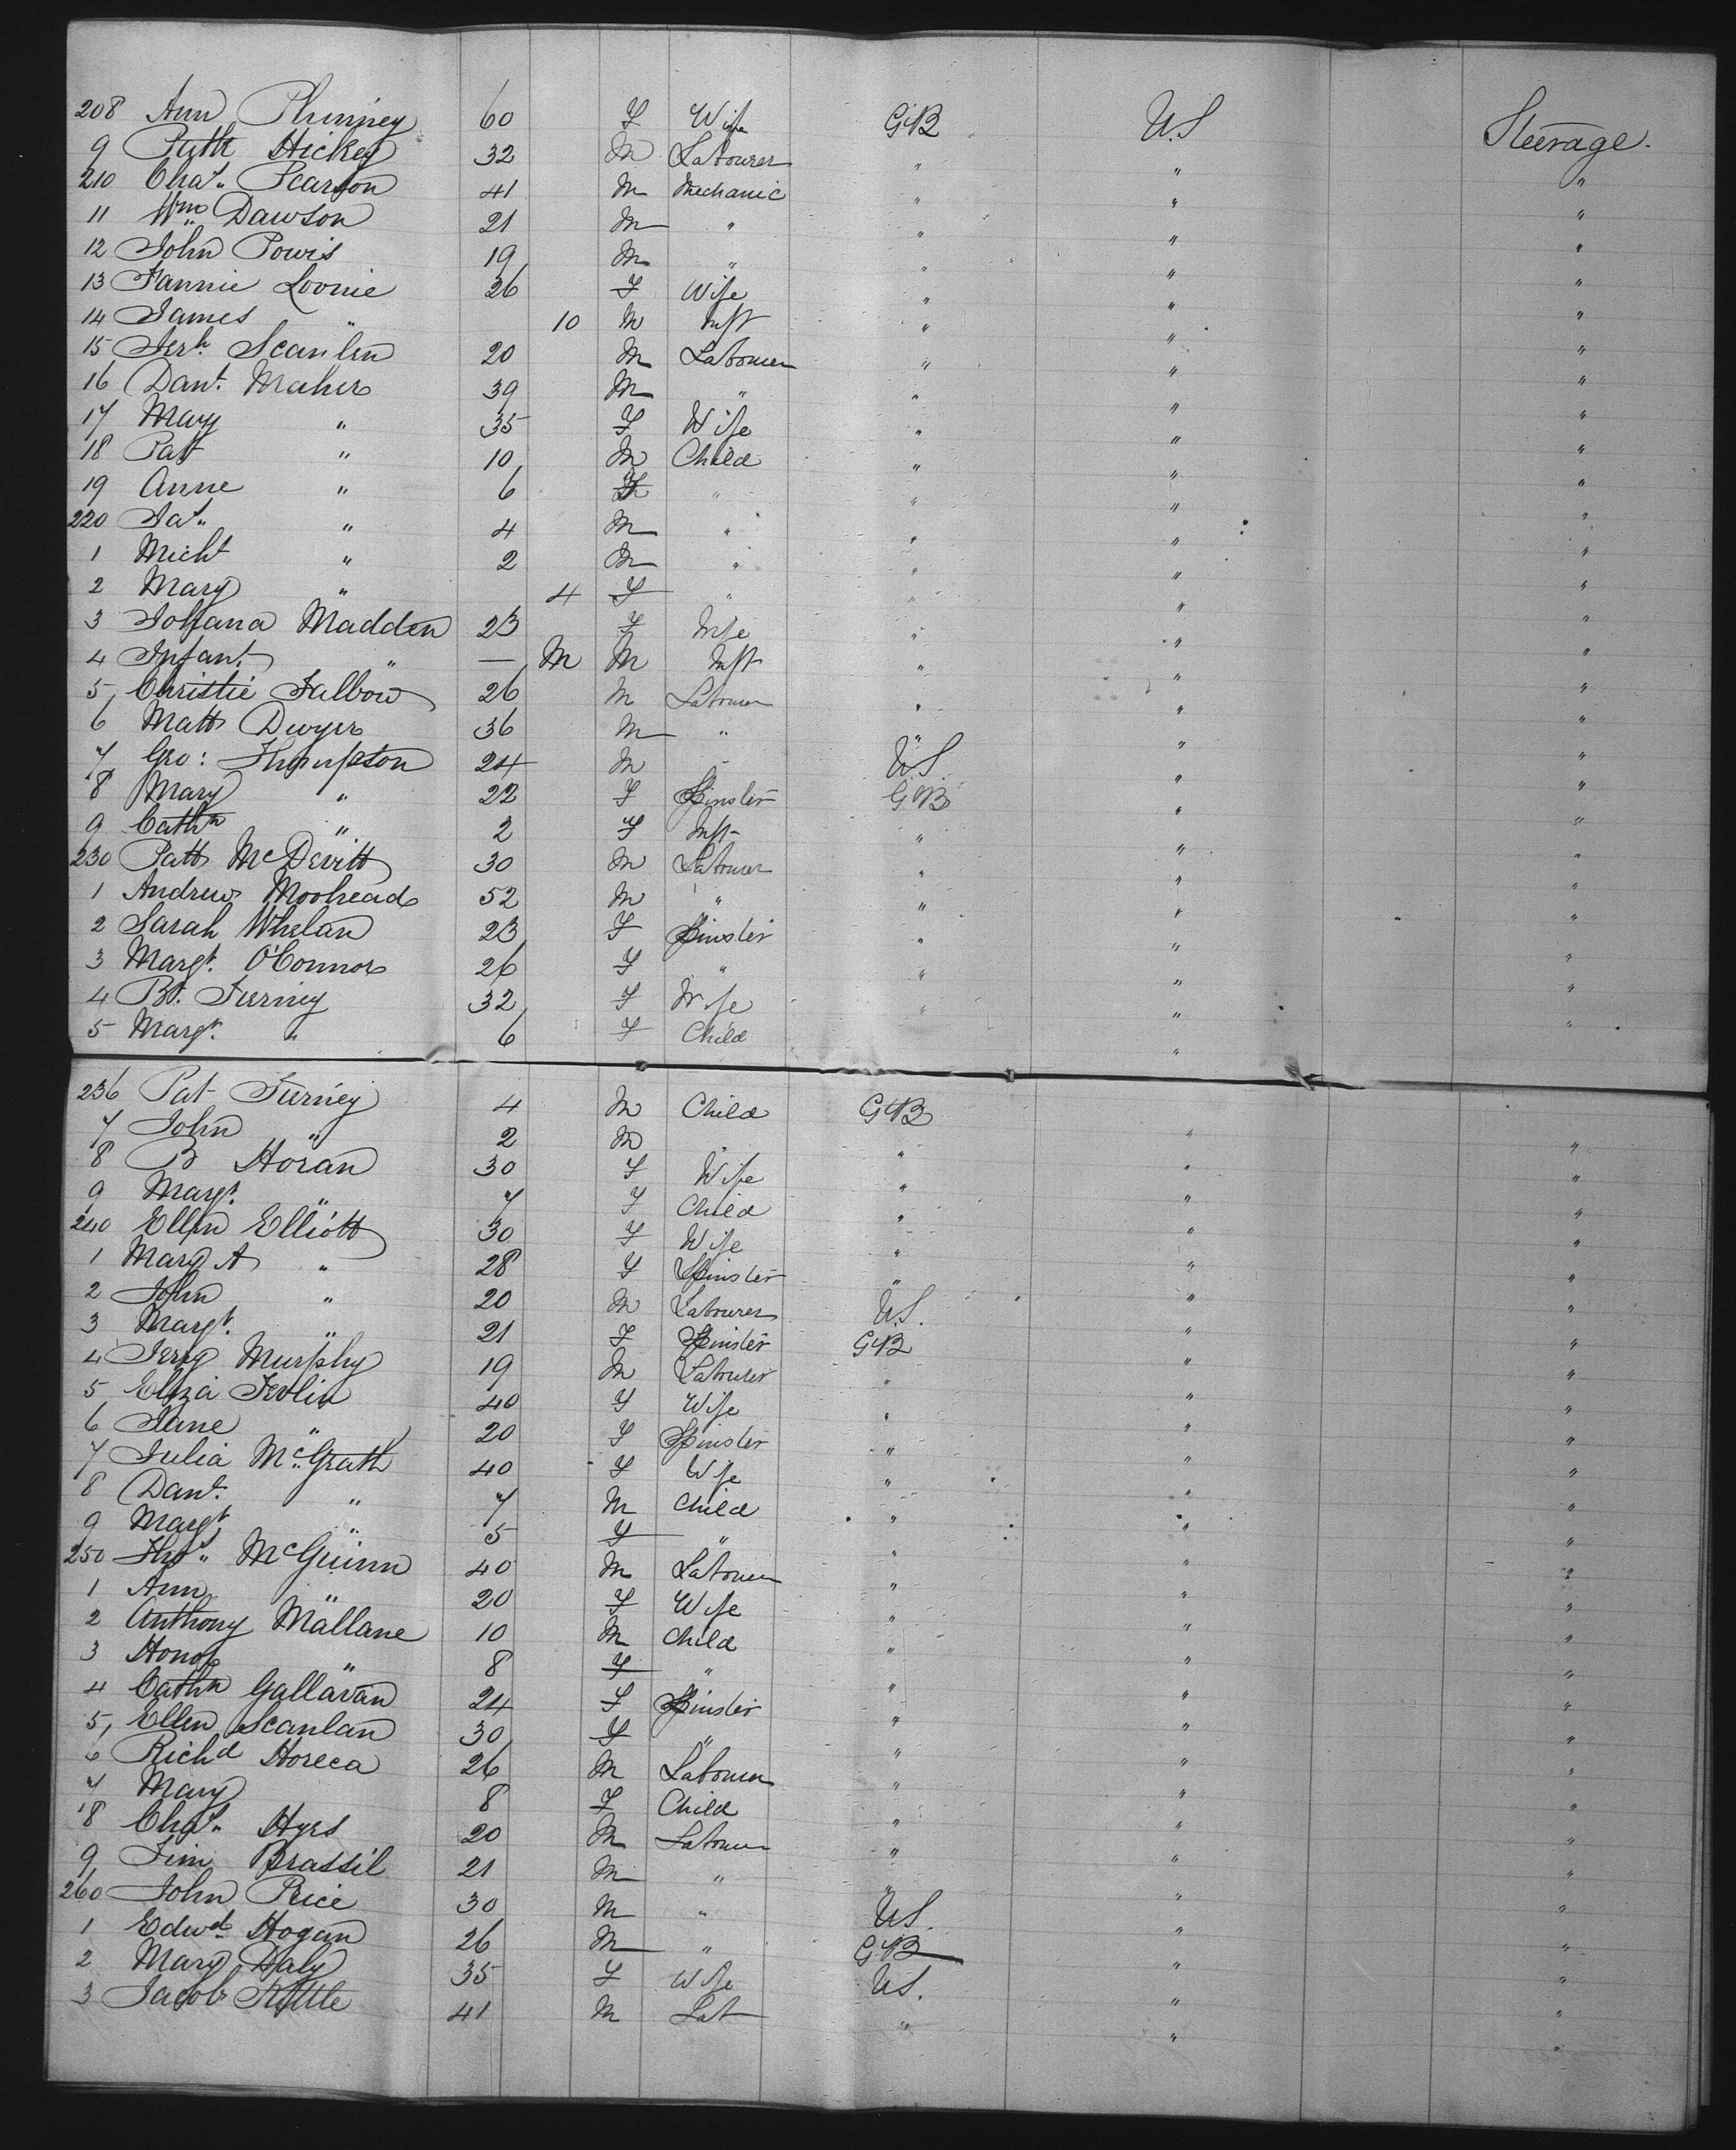 208 Ann Plunney 60 F Wife GB U.S Steerage.
9 Patk Hickey 32 M Labourer " " "
210 Chas. Pearson 41 M Mechanic " " "
11 Wm Dawson 21 M " " " "
12 John Powis 19 M " " " "
13 Fannie Loonie 26 F Wife " " "
14 James " 10 M Inft " " "
15 Jerh. Scanlen 20 M Labourer " " "
16 Danl. Maher 39 M " " " "
17 Mary " 35 F Wife " " "
18 Pat " 10 M Child " " "
19 Anne " 6 F " " " "
220 Jas. " 4 M " " " "
1 Michl " 2 M " " " "
2 Mary " 4 F " " " "
3 Johana Madden 23 F Wife " " "
4 Infant " — M M Inft " " "
5 Christie Fallow 26 M Labourer " " "
6 Matt Dwyer 36 M " " " "
7 Geo: Thompson 24 M " US " "
8 Mary " 22 F Spinster GB " "
9 Cathn " 2 F Inft " " "
230 Patt McDevitt 30 M Labourer " " "
1 Andrew Moohead 52 M " " " "
2 Sarah Whelan 23 F Spinster " " "
3 Margt. O'Connor 26 F " " " "
4 Bt. Tierney 32 F Wife " " "
5 Margt. " 6 F Child " " "
236 Pat Tierney 4 M Child GB " "
7 John " 2 M " " " "
8 B Horan 30 F Wife " " "
9 Margt. " 7 F Child " " "
240 Ellen Elliott 30 F Wife " " "
1 Marg A " 28 F Spinster " " "
2 John " 20 M Labourer U.S. " "
3 Margt. " 21 F Spinster GB " "
4 Jerry Murphy 19 M Labourer " " "
5 Eliza Jevlin 40 F Wife " " "
6 Jane " 20 F Spinster " " "
7 Julia McGrath 40 F Wife " " "
8 Danl. " 7 M Child " " "
9 Margt " 5 F " " " "
250 Thos. McGuinn 40 M Labourer " " "
1 Ann " 20 F Wife " " "
2 Anthony Mallane 10 M Child " " "
3 Honor " 8 F " " " "
4 Cathn Gallavan 24 F Spinster " " "
5 Ellen Scanlan 30 F " " " "
6 Richd Horeca 26 M Labourer " " "
7 Mary 8 F Child " " "
8 Chas. Hyes 20 M Labourer " " "
9 Tim Brassil 21 M " " " "
260 John Price 30 M " US. " "
1 Edwd. Hogan 26 M " GB " "
2 Mary Daly 35 F Wife US. " "
3 Jacob Kittle 41 M Lab " " "